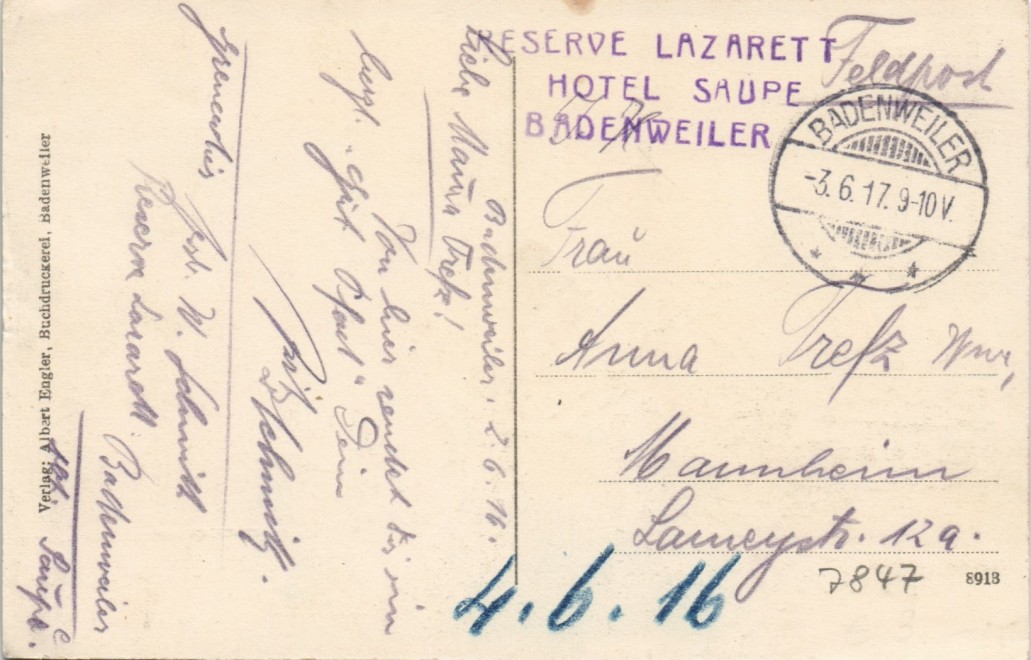 RESERVE LAZARETT
HOTEL SAUPE
BADENWEILER
Feldpost
BADENWEILER
-3.6.17.9-10V.
Frau
Anna Trefz Wwe,
Mannheim
Lameystr. 12a.
7847
8913
4.6.16
Badenweiler, 2.6.16.
Liebe Mama Trefz!
Von hier sendet dir ein
herzl. "Gut Pfad" Dein
Fritz Schmitt.
Grenadier
W. Schmitt
Reserve Lazarett: Badenweiler
Saupe.
Verlag: Albert Engler, Buchdruckerei, Badenweiler